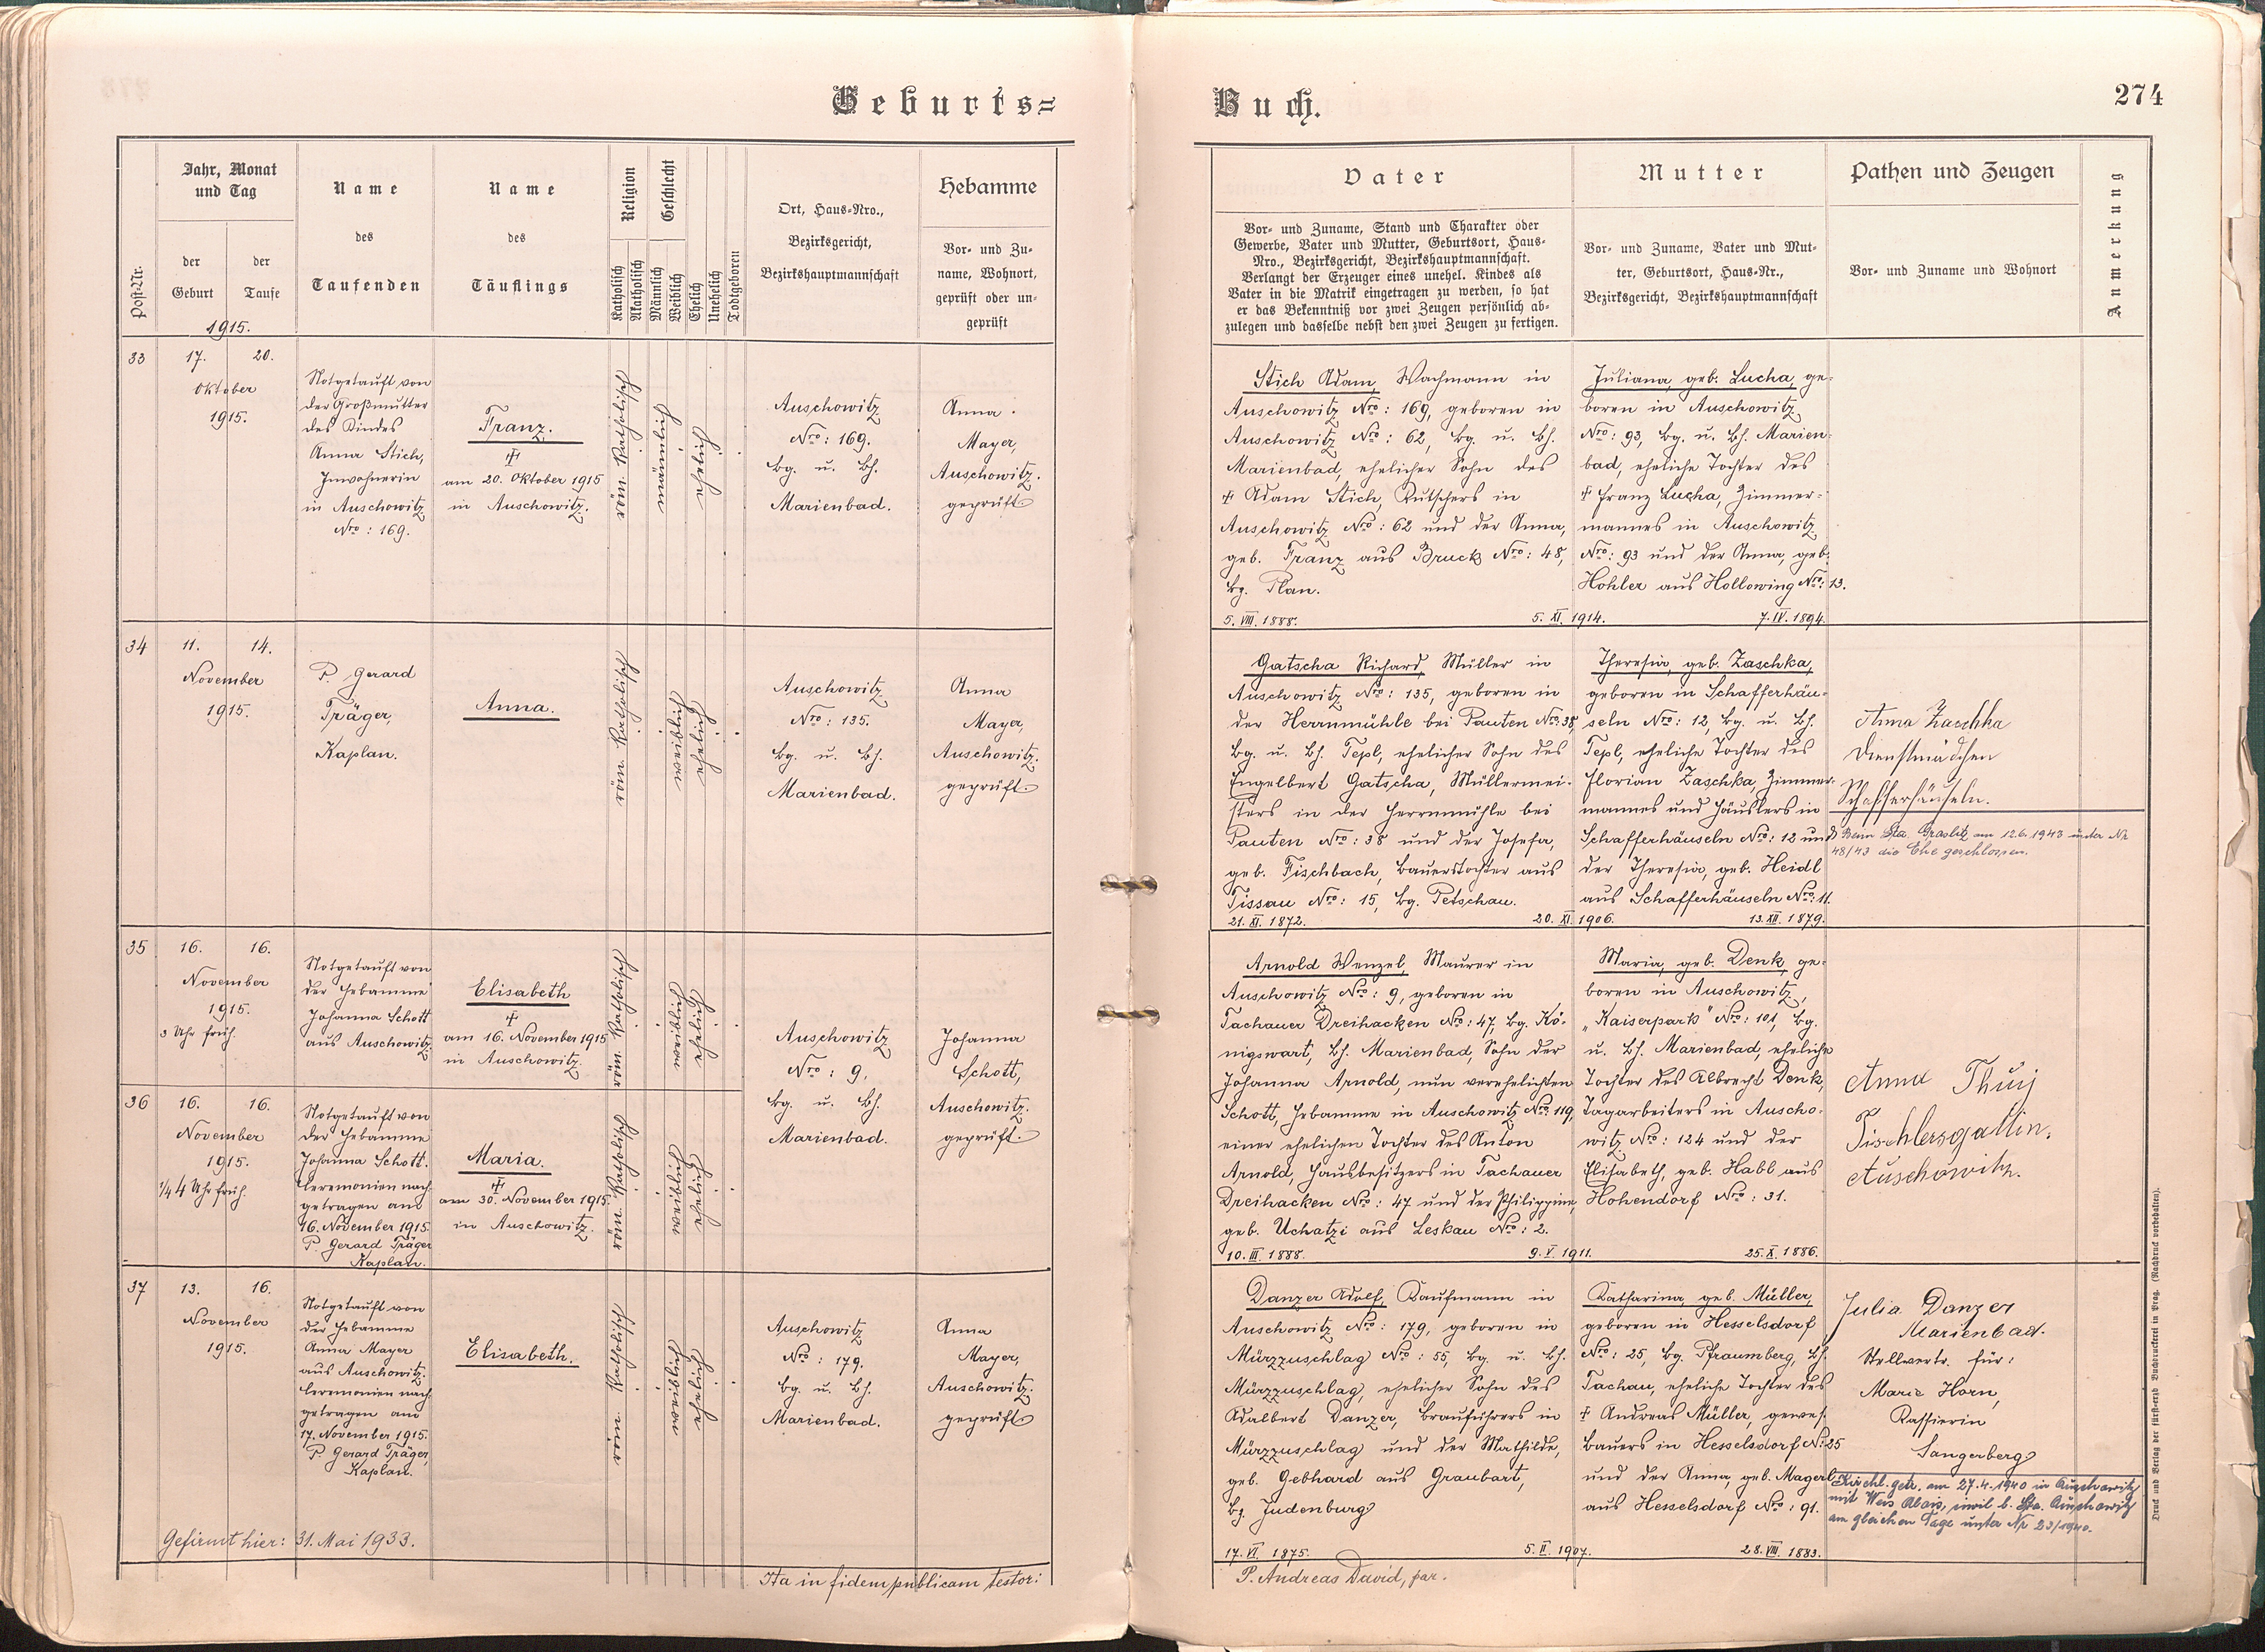 Geburts=
Buch.
274
Post-Nr.
Jahr, Monat
und Tag
der
Geburt
der
Taufe
1915.
Name
des
Taufenden
Name
des
Täuflings
Religion
Katholisch
Akatholisch
Geschlecht
Männlich
Weiblich
Ehelich
Unehelich
Todtgeboren
Ort, Haus=Nro.,
Bezirksgericht,
Bezirkshauptmannschaft
Hebamme
Vor= und Zu=
name, Wohnort,
geprüft oder un=
geprüft
Vater
Vor= und Zuname, Stand und Charakter oder
Gewerbe, Vater und Mutter, Geburtsort, Haus=
Nro., Bezirksgericht, Bezirkshauptmannschaft.
Verlangt der Erzeuger eines unehel. Kindes als
Vater in die Matrik eingetragen zu werden, so hat
er das Bekenntniß vor zwei Zeugen persönlich ab=
zulegen und dasselbe nebst den zwei Zeugen zu fertigen.
Mutter
Vor= und Zuname, Vater und Mut=
ter, Geburtsort, Haus=Nr.,
Bezirksgericht, Bezirkshauptmannschaft
Pathen und Zeugen
Vor= und Zuname und Wohnort
Anmerkung
33
17.
20.
Oktober
1915.
Notgetauft von
der Großmutter
des Kindes
Anna Stich,
Inwohnerin
in Auschowitz
Nro: 169.
Franz.
‡
am 20. Oktober 1915
in Auschowitz.
röm. katholisch
männlich
ehelich
Auschowitz
Nro: 169.
bg. u. bh.
Marienbad.
Anna
Mayer,
Auschowitz.
geprüft
Stich Adam, Wachmann in
Auschowitz Nro: 169, geboren in
Auschowitz Nro: 62, bg. u. bh.
Marienbad, ehelicher Sohn des
‡ Adam Stich, Kutschers in
Auschowitz Nro: 62 und der Anna,
geb. Franz aus Bruck Nro: 48,
bg. Plan.
5. VIII. 1888.
5. XI. 1914.
Juliana, geb. Lucha, ge=
boren in Auschowitz
Nro: 93, bg. u. bh. Marien=
bad, eheliche Tochter des
‡ Franz Lucha, Zimmer=
mannes in Auschowitz
Nro: 93 und der Anna, geb.
Hohler aus Hollowing Nro: 13.
7. IV. 1894.
34
11.
14.
November
1915.
P. Gerard
Träger,
Kaplan.
Anna.
röm. katholisch
weiblich
ehelich
Auschowitz
Nro: 135.
bg. u. bh.
Marienbad.
Anna
Mayer,
Auschowitz.
geprüft.
Gatscha Richard, Müller in
Auschowitz Nro: 135, geboren in
der Herrnmühle bei Pauten Nro: 38,
bg. u. bh. Tepl, ehelicher Sohn des
Engelbert Gatscha, Müllermei=
sters in der Herrnmühle bei
Pauten Nro: 38 und der Josefa,
geb. Fischbach, Bauerstochter aus
Tissau Nro: 15, bg. Petschau.
21. XI. 1872.
20. XI. 1906.
Theresia, geb. Zaschka,
geboren in Schafferhäu=
seln Nro: 12, bg. u. bh.
Tepl, eheliche Tochter des
Florian Zaschka, Zimmer=
mannes und Häuslers in
Schafferhäuseln Nro: 12 und
der Theresia, geb. Heidl
aus Schafferhäuseln Nro: 11.
13. XII. 1879.
Anna Zaschka
Dienstmädchen
Schafferhäuseln.
Beim Sta. Graslitz am 12.6.1943 unter Nr
48/43 die Ehe geschlossen.
35
16.
16.
November
1915.
3 Uhr früh.
Notgetauft von
der Hebamme
Johanna Schott
aus Auschowitz.
Elisabeth
‡
am 16. November 1915
in Auschowitz
röm. katholisch
weiblich
ehelich
36
16.
16.
November
1915.
1/4 4 Uhr früh.
Notgetauft von
der Hebamme
Johanna Schott.
Ceremonien nach=
getragen am
16. November 1915.
P. Gerard Träger
Kaplan.
Maria.
‡
am 30. November 1915.
in Auschowitz.
röm. katholisch
weiblich
ehelich
Auschowitz
Nro: 9,
bg. u. bh.
Marienbad.
Johanna
Schott,
Auschowitz.
geprüft.
Arnold Wenzel, Maurer in
Auschowitz Nro: 9, geboren in
Tachauer Dreihacken Nro: 47, bg. Kö=
nigswart, bh. Marienbad, Sohn der
Johanna Arnold, nun verehelichten
Schott, Hebamme in Auschowitz Nro: 119,
einer ehelichen Tochter des Anton
Arnold, Hausbesitzers in Tachauer
Dreihacken Nro: 47 und der Philippine,
geb. Uchatzi aus Leskau Nro: 2.
10. III. 1888.
9. V. 1911.
Maria, geb. Denk, ge=
boren in Auschowitz,
„Kaiserpark" Nro: 101, bg.
u. bh. Marienbad, eheliche
Tochter des Albrecht Denk,
Tagarbeiters in Auscho=
witz Nro: 124 und der
Elisabeth, geb. Habl aus
Hohendorf Nro: 31.
25. X. 1886.
Anna
Tischlersgattin.
Auschowitz.
37
13.
16.
November
1915.
Notgetauft von
der Hebamme
Anna Mayer
aus Auschowitz.
Ceremonien nach=
getragen am
17. November 1915.
P. Gerard Träger,
Kaplan.
Elisabeth.
röm. katholisch
weiblich
ehelich
Auschowitz
Nro: 179.
bg. u. bh.
Marienbad.
Anna
Mayer,
Auschowitz.
geprüft
Danzer Adolf, Kaufmann in
Auschowitz Nro: 179, geboren in
Mürzzuschlag Nro: 55, bg. u. bh.
Mürzzuschlag, ehelicher Sohn des
Adalbert Danzer, Brauführers in
Mürzzuschlag und der Mathilde,
geb. Gebhard aus Graubart,
bg. Judenburg
17. VI. 1875.
5. II. 1907.
Katharina, geb. Müller,
geboren in Hesselsdorf
Nro: 25, bg. Pfraumberg, bh.
Tachau, eheliche Tochter des
‡ Andreas Müller, gewes.
Bauers in Hesselsdorf Nr: 25
und der Anna, geb. Magerl
aus Hesselsdorf Nro: 91.
28. VIII. 1883.
Julia Danzer
Marienbad.
Stellvertr. für:
Marie Horn,
Kassierin
Sangerberg
Kirchl. getr. am 27.4.1940 in Auschowitz
mit Weis Alois, zivil b. Sta. Auschowitz
am gleichen Tage unter Nr 23/1940.
Gefirmt hier: 31. Mai 1933.
Ita in fidem publicam testor:
P. Andreas David, par.
Druck und Verlag der fürst=erzb. Buchdruckerei in Prag. (Nachdruck vorbehalten).